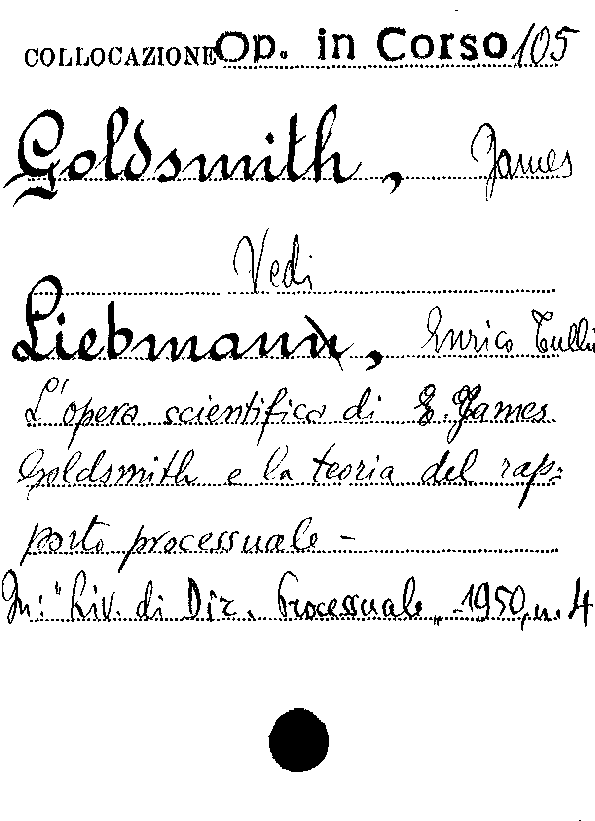 COLLOCAZIONE Op. in Corso 105
Goldsmith, James
Vedi
Liebmann, Enrico Tullio
L'opera scientifica di E. James
Goldsmith e la teoria del rap-
porto processuale -
In: "Riv. di Dir. Processuale" - 1950, n. 4